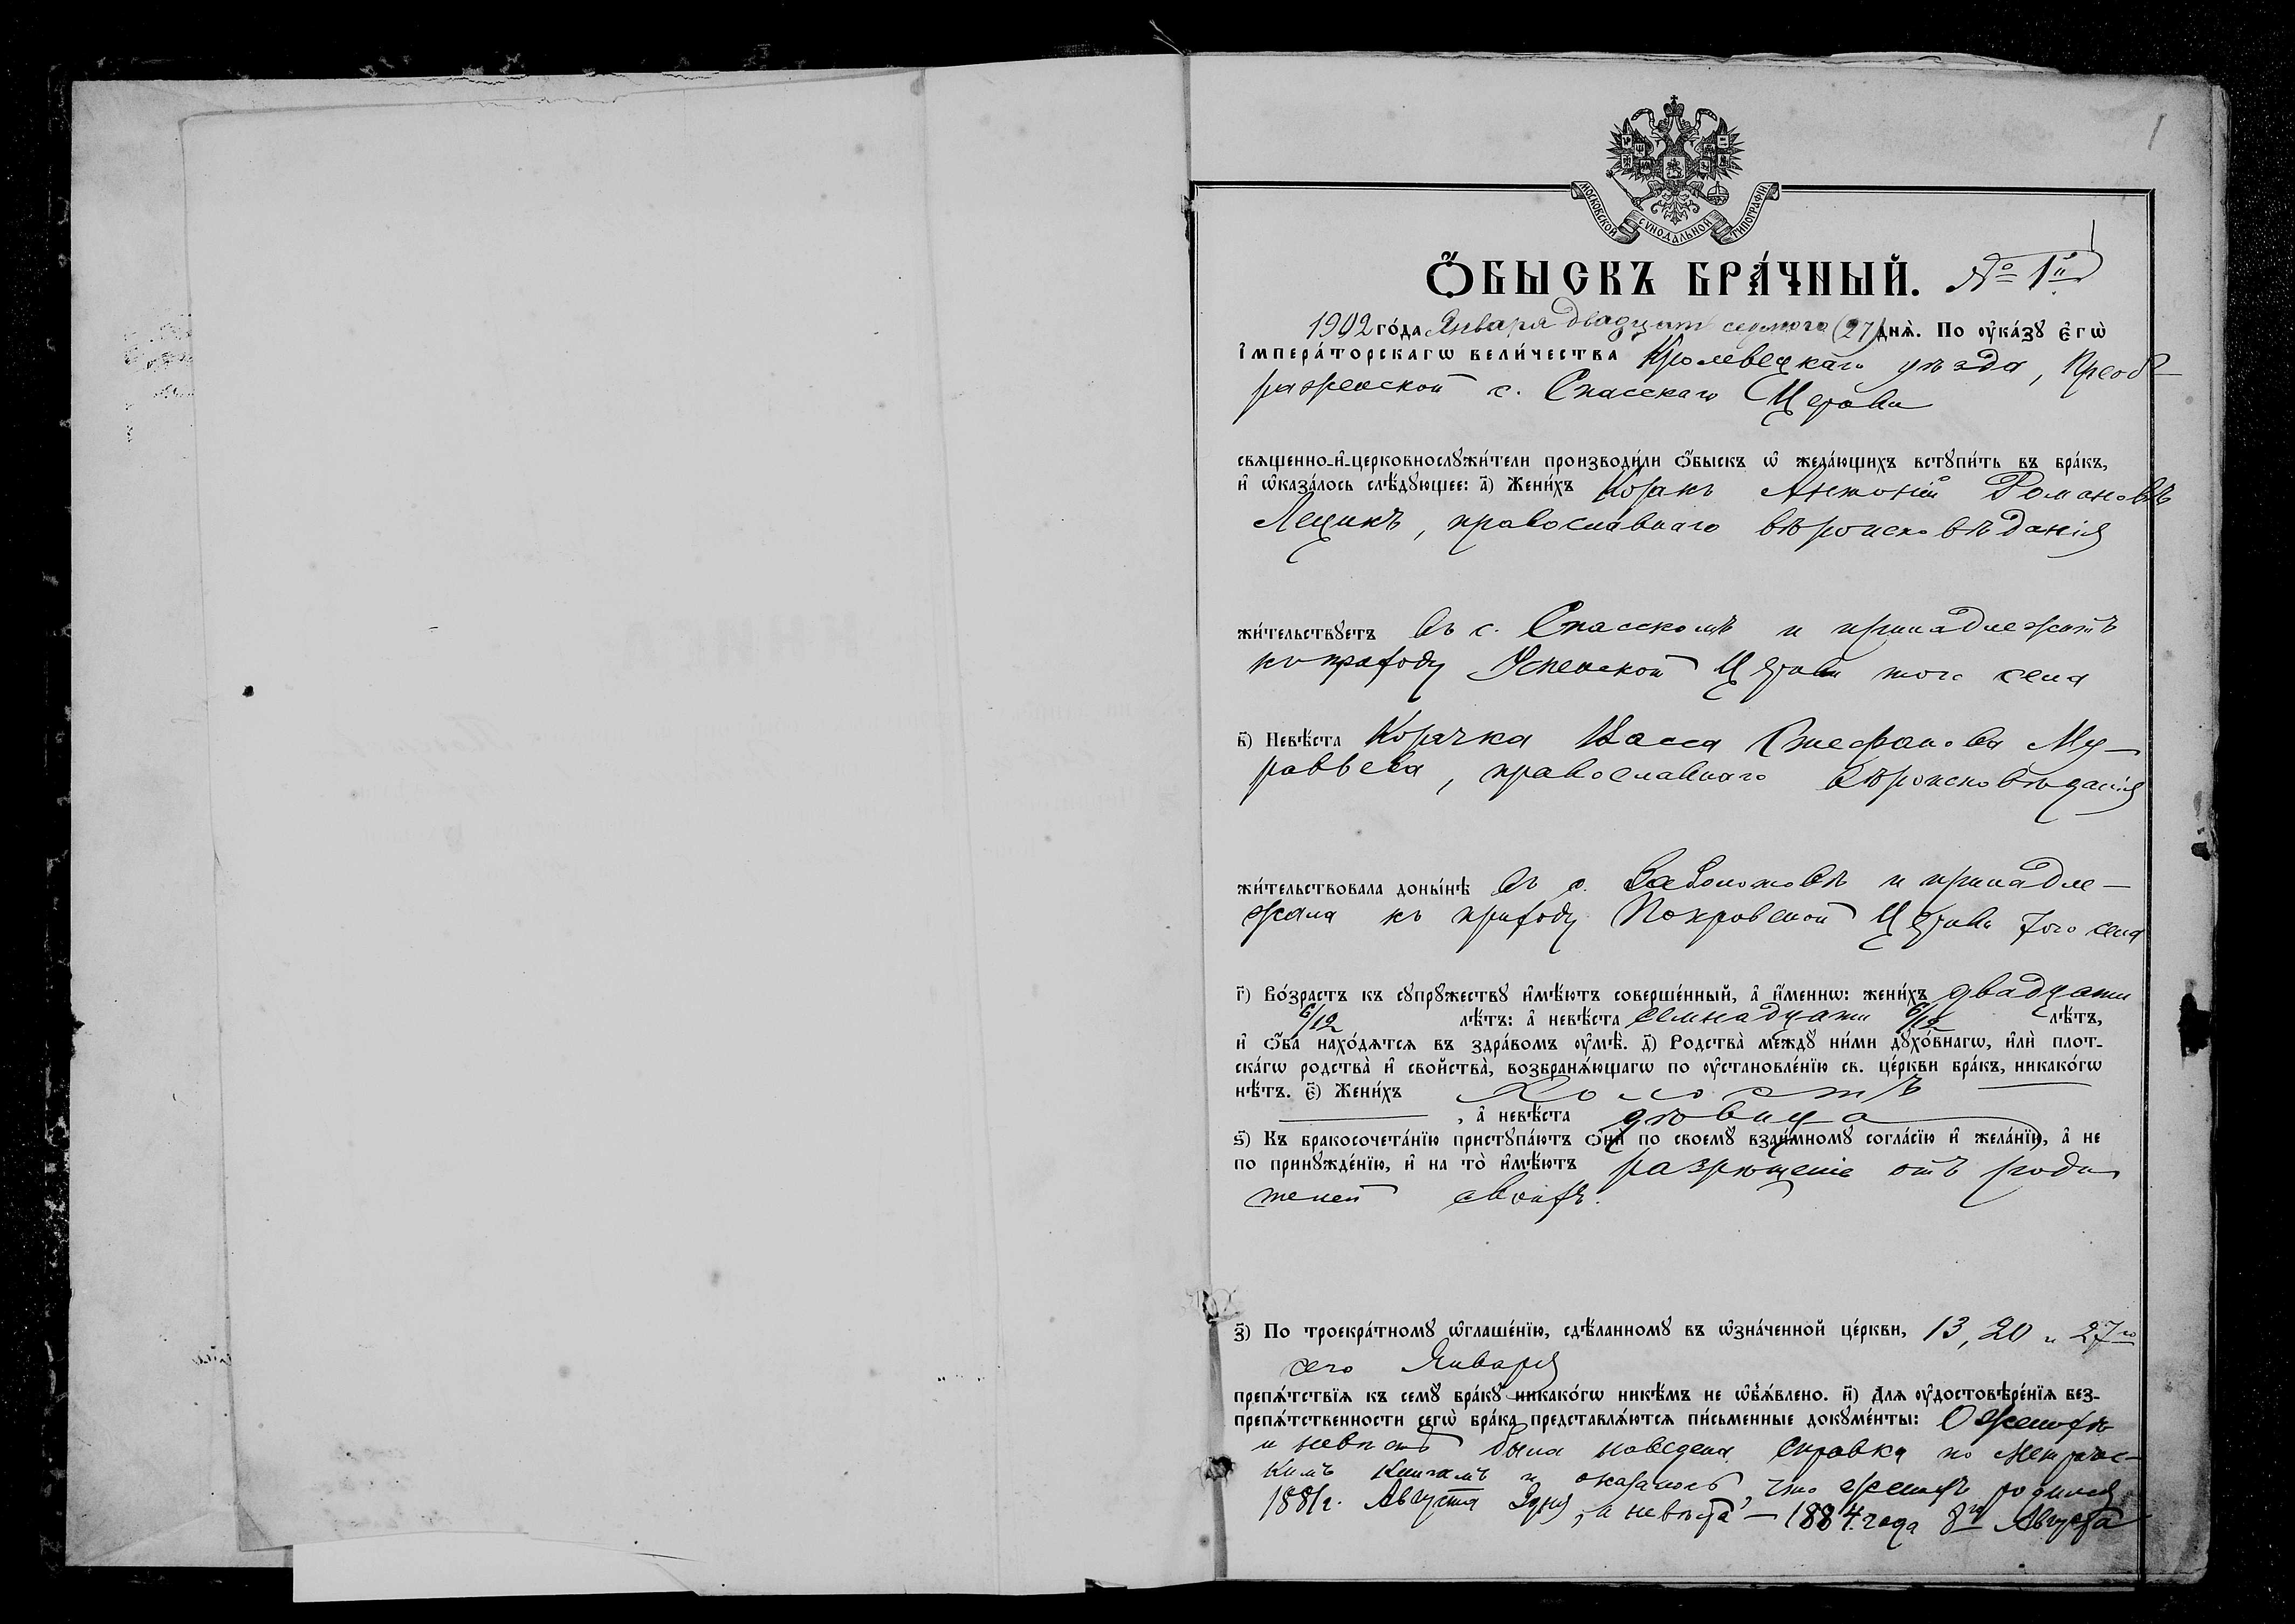 1
МОСКОВСКОЙ СѴНОДАЛЬНОЙ ТИПОГРАФІИ
Ѻ҆БЫСКЪ БРА́ЧНЫЙ. № 1й
1902 го́да Января двадцать седьмого (27) днѧ̀. По ᲂу҆ка́зꙋ є҆гѡ̀
і҆мпера́торскагѡ вели́чества Кролевецкаго уѣзда, Преоб-
раженской с. Спасскаго Церкви
свѧщенно-и҆-церковнослꙋжи́тели производи́ли ѻ҆́быскъ ѡ҆ жела́ющихъ встꙋпи́ть въ бра́къ,
и҆ ѡ҆каза́лось слѣ́дꙋющее: а҃) Жени́хъ Козакъ Антоній Романовъ
Лещикъ, православнаго вѣроисповѣданія
жи́тельствꙋетъ въ с. Спасскомъ и принадлежитъ
къ приходу Успенской Церкви того села
в҃) Невѣ́ста Козачка Васса Стефанова Му-
равьева, православнаго вѣроисповѣданія
жи́тельствовала доны́нѣ въ с. и принадле-
жала къ приходу Покровской Церкви того села
г҃) Во́зрастъ къ сꙋпрꙋ́жествꙋ и҆мѣ́ютъ соверше́нный, а҆ и҆́меннѡ: жени́хъ двадцати
6/12 лѣ́тъ: а҆ невѣ́ста семнадцати 6/12 лѣ́тъ,
и҆ ѻ҆́ба нахо́дѧтсѧ въ здра́вомъ ᲂу҆мѣ̀. д҃) Родства̀ междꙋ̀ ни́ми дꙋхо́внагѡ, и҆лѝ плот-
ска́гѡ родства̀ и҆ свойства̀, возбранѧ́ющагѡ по ᲂу҆становле́нїю св. це́ркви бра́къ, никако́гѡ
нѣ́тъ. є҃) Жени́хъ Холостъ
, а҆ невѣ́ста дѣвица
ѕ҃) Къ бракосочета́нїю пристꙋпа́ютъ ѻ҆нѝ по своемꙋ̀ взаи́мномꙋ согла́сїю и҆ жела́нїю, а҆ не
по принꙋжде́нїю, и҆ на то̀ и҆мѣ́ютъ разрѣшеніе отъ роди
телей своихъ.
з҃) По троекра́тномꙋ ѡ҆глаше́нїю, сдѣ́ланномꙋ въ ѡ҆зна́ченной це́ркви, 13, 20 и 27го
сего Января
препѧ́тствїѧ къ семꙋ̀ бра́кꙋ никако́гѡ никѣ́мъ не ѡ҆б̾ѧ́влено. и҃) Длѧ ᲂу҆достовѣре́нїѧ без-
препѧ́тственности сегѡ̀ бра́ка представлѧ́ютсѧ пи́сьменные докꙋме́нты: О женихѣ
и невѣстѣ была наведена справка по метричес-
кимъ книгамъ и оказалось, что женихъ родился
1881 г. Августа 3 дня, а невѣста – 1884 года 8го Августа